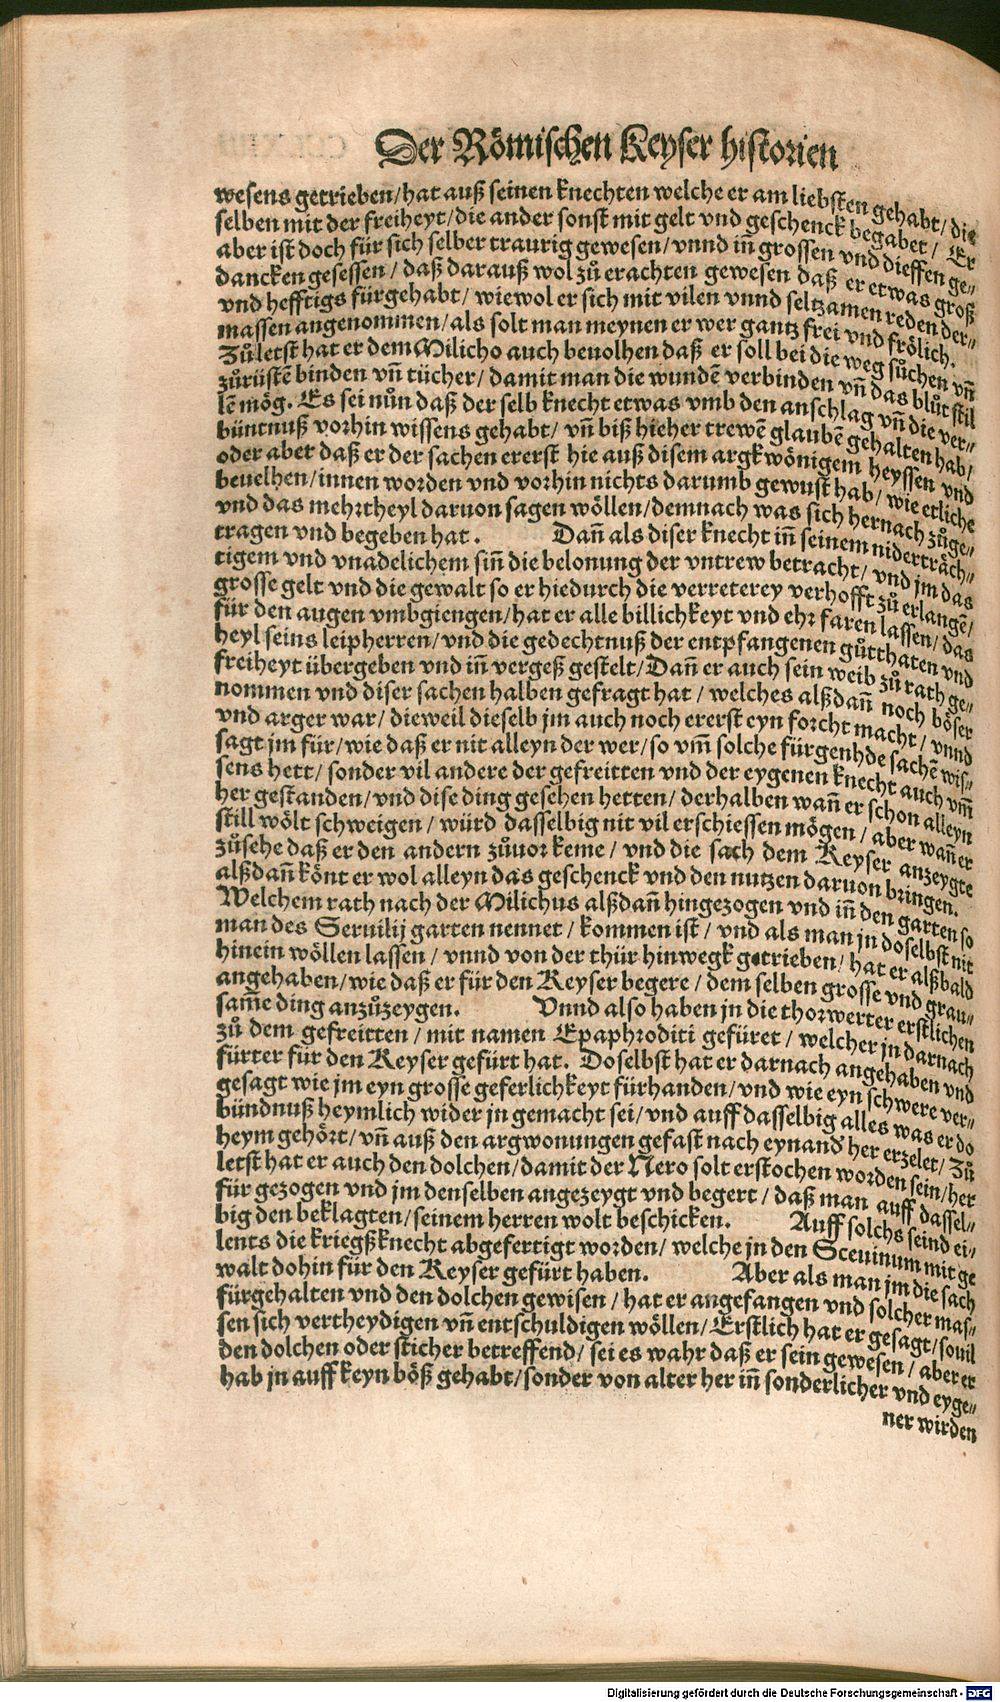 Der Römischen Keyser historien
wesens getrieben/hat auß seinen knechten welche er am liebsten gehabt/die
selben mit der freiheyt/die ander sonst mit gelt vnd geschenck begabet/ Er
aber ist doch für sich selber traurig gewesen/vnnd iñ grossen vnd dieffen ge⸗
dancken gesessen/ daß darauß wol zů erachten gewesen daß er etwas groß
vnd hefftigs fürgehabt/ wiewol er sich mit vilen vnnd seltzamen reden der⸗
massen angenommen/als solt man meynen er wer gantz frei vnd frölich.
Zůletst hat er dem Milicho auch beuolhen daß er soll bei die weg sůchen vñ
zůrüstẽ binden vñ tücher/ damit man die wundẽ verbinden vñ das blůt stil
lẽ mög. Es sei nůn daß der selb knecht etwas vmb den anschlag vñ die ver⸗
büntnuß vorhin wissens gehabt/ vñ biß hieher trewẽ glaubẽ gehalten hab/
oder aber daß er der sachen ererst hie auß disem argkwönigem heyssen vnd
beuelhen/innen worden vnd vorhin nichts darumb gewust hab/ wie etliche
vnd das mehrtheyl daruon sagen wöllen/demnach was sich hernach zůge⸗
tragen vnd begeben hat. Dañ als diser knecht iñ seinem niderträch⸗
tigem vnd vnadelichem siñ die belonung der vntrew betracht/ vnd jm das
grosse gelt vnd die gewalt so er hiedurch die verreterey verhofft zů erlangẽ/
für den augen vmbgiengen/hat er alle billichkeyt vnd ehr faren lassen/ das
heyl seins leipherren/vnd die gedechtnuß der entpfangenen gůtthaten vnd
freiheyt übergeben vnd iñ vergeß gestelt/Dañ er auch sein weib zů rath ge⸗
nommen vnd diser sachen halben gefragt hat/ welches alßdañ noch böser
vnd arger war/ dieweil dieselb jm auch noch ererst eyn forcht macht/ vnnd
sagt jm für/wie daß er nit alleyn der wer/so vm̃ solche fürgenhde sachẽ wis⸗
sens hett/ sonder vil andere der gefreitten vnd der eygenen knecht auch vm̃
her gestanden/vnd dise ding gesehen hetten/ derhalben wañ er schon alleyn
still wölt schweigen/ würd dasselbig nit vil erschiessen mögen/ aber wañ er
zůsehe daß er den andern zůuor keme/ vnd die sach dem Keyser anzeygte
alßdañ könt er wol alleyn das geschenck vnd den nutzen daruon bringen.
Welchem rath nach der Milichus alßdañ hingezogen vnd iñ den garten so
man des Seruilij garten nennet/ kommen ist/ vnd als man jn doselbst nit
hinein wöllen lassen/ vnnd von der thür hinwegk getrieben/ hat er alßbald
angehaben/wie daß er für den Keyser begere/ dem selben grosse vnd grau⸗
sam̃e ding anzůzeygen. Vnnd also haben jn die thorwerter erstlichen
zů dem gefreitten/ mit namen Epaphroditi gefüret/ welcher jn darnach
fürter für den Keyser gefürt hat. Doselbst hat er darnach angehaben vnd
gesagt wie jm eyn grosse geferlichkeyt fürhanden/vnd wie eyn schwere ver⸗
bündnuß heymlich wider jn gemacht sei/vnd auff dasselbig alles was er do
heym gehört/vñ auß den argwonungen gefast nach eynand' her erzelet/ Zů
letst hat er auch den dolchen/damit der Nero solt erstochen worden sein/her
für gezogen vnd jm denselben angezeygt vnd begert/ daß man auff dassel⸗
big den beklagten/seinem herren wolt beschicken. Auff solchs seind ei⸗
lents die kriegßknecht abgefertigt worden/ welche jn den Sceuinum mit ge
walt dohin für den Keyser gefürt haben. Aber als man jm die sach
fürgehalten vnd den dolchen gewisen/ hat er angefangen vnd solcher mas⸗
sen sich vertheydigen vñ entschuldigen wöllen/ Erstlich hat er gesagt/souil
den dolchen oder sticher betreffend/ sei es wahr daß er sein gewesen/ aber er
hab jn auff keyn böß gehabt/sonder von alter her iñ sonderlicher vnd eyge⸗
ner wirden
Digitalisierung gefördert durch die Deutsche Forschungsgemeinschaft - DFG